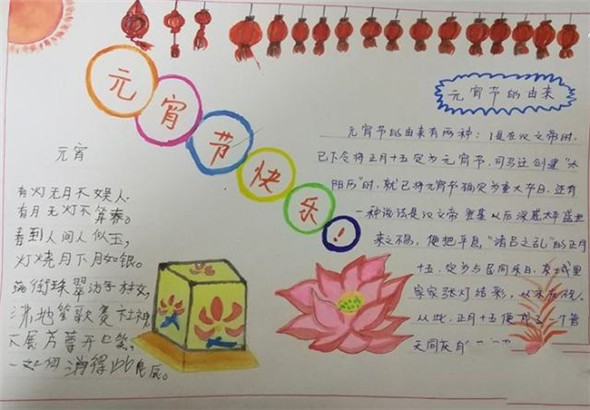 元宵节快乐!
元宵
有灯无月不娱人
有月无灯不算春。
春到人间人似玉,
灯烧月下月如银。
满街珠翠游村女,
沸地笙歌赛社神
不展芳尊开口笑
消得此良辰。
元宵节的由来
元宵节的由来有两种:1是在汉文帝时,
已下令将正月十五定为元宵节,司马迁创建“太
阳历”时,就已将元宵节确定为重大节日,还有
一种说法是汉文帝登基以后深感太平盛世
来之不易,便把平息“诸吕之乱”的正月
十五,定为与民同乐日,京城里
家家张灯结彩,以示庆祝,
从此,正月十五便成了一个普
天同庆的